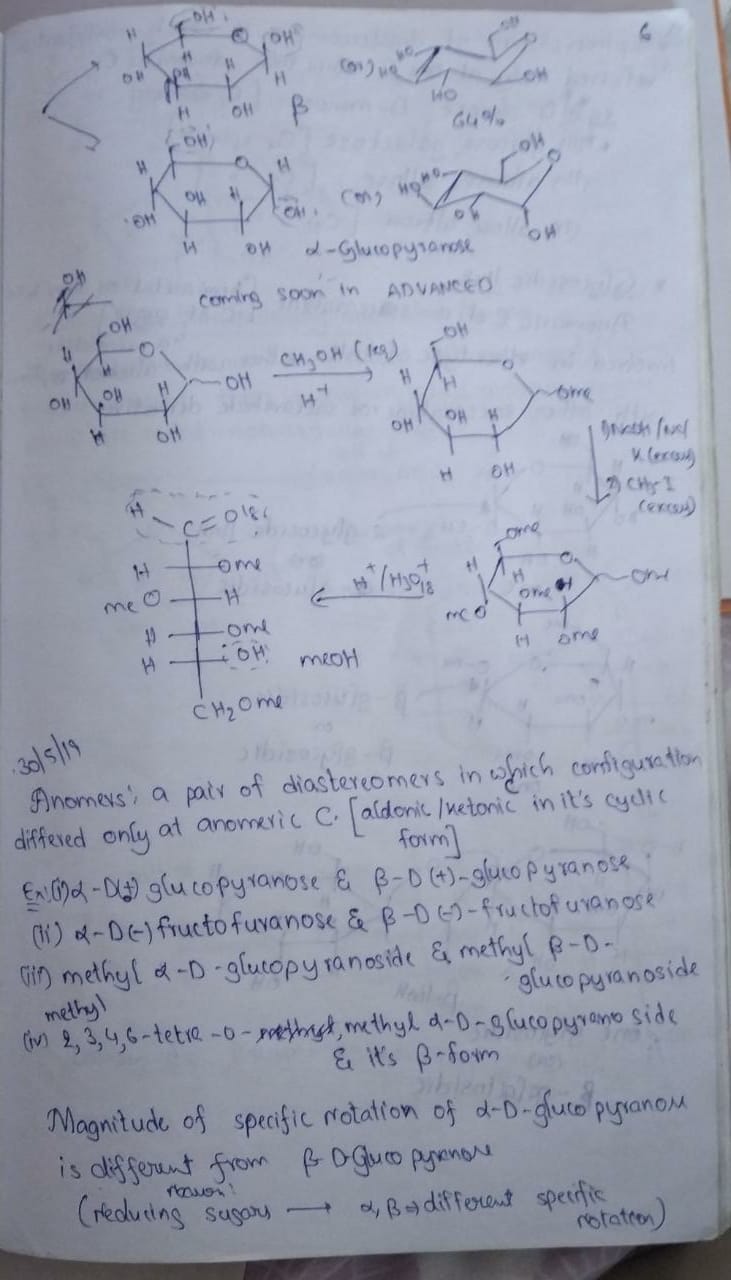 6
OH
H
O
OH
H
H
H
OH
OH
H
H
OH
β
(or)
HO
HO
HO
OH
O
OH
64%
OH
H
O
H
OH
H
OH
OH
H
OH
(or)
HO
HO
OH
OH
O
OH
α-Glucopyranose
coming soon in ADVANCED
OH
OH
O
H
H
OH
OH
H
OH
H
OH
CH3OH (1eq)
H+
OH
O
H
H
OMe
OH
OH
H
H
OH
1) NaOH/
(excess)
2) CH3-I
(excess)
H
C=O18
H
OMe
MeO
H
H
OMe
H
OH
CH2OMe
MeOH
H+/H3O+18
OMe
O
H
H
OMe
OMe
H
MeO
H
OMe
30/5/19
Anomers: a pair of diastereomers in which configuration
differed only at anomeric C. [aldonic/ketonic in it's cyclic
form]
Ex: (i) α-D(+) glucopyranose & β-D(+)-glucopyranose
(ii) α-D(-) fructofuranose & β-D(-)-fructofuranose
(iii) methyl α-D-glucopyranoside & methyl β-D-
glucopyranoside
methyl
(iv) 2,3,4,6-tetra-O- methyl α-D-glucopyrano side
& it's β-form
Magnitude of specific rotation of α-D-glucopyranose
is different from β-D-Gluco pyranose
reason:
(reducing sugars → α, β → different specific
rotation)